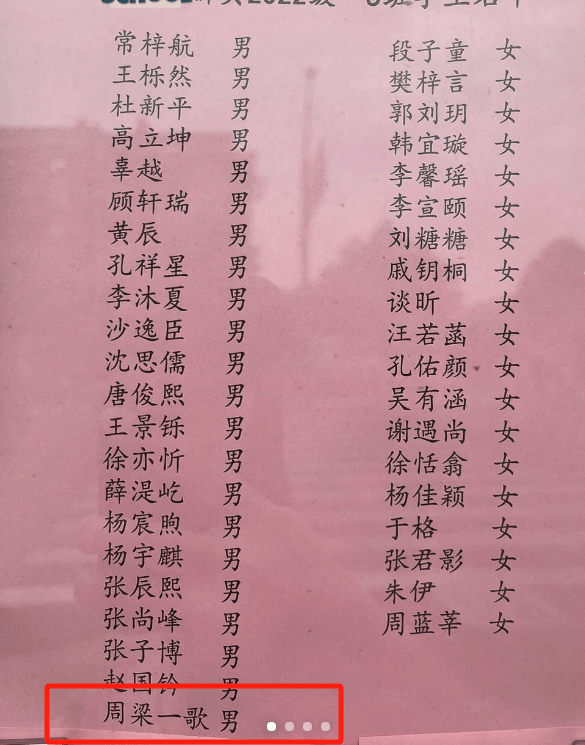 常梓航 男
王栎然 男
杜新平 男
高立坤 男
辜越 男
顾轩瑞 男
黄辰 男
孔祥星 男
李沐夏 男
沙逸臣 男
沈思儒 男
唐俊熙 男
王景铄 男
徐亦忻 男
薛湜屹 男
杨宸煦 男
杨宇麒 男
张辰熙 男
张尚峰 男
张子博 男
赵国钤 男
周梁一歌 男
段子童 女
樊梓言 女
郭刘玥 女
韩宜璇 女
李馨瑶 女
李宣颐 女
刘糖糖 女
戚钥桐 女
谈昕 女
汪若菡 女
孔佑颜 女
吴有涵 女
谢遇尚 女
徐恬翕 女
杨佳颖 女
于格 女
张君影 女
朱伊 女
周蓝莘 女